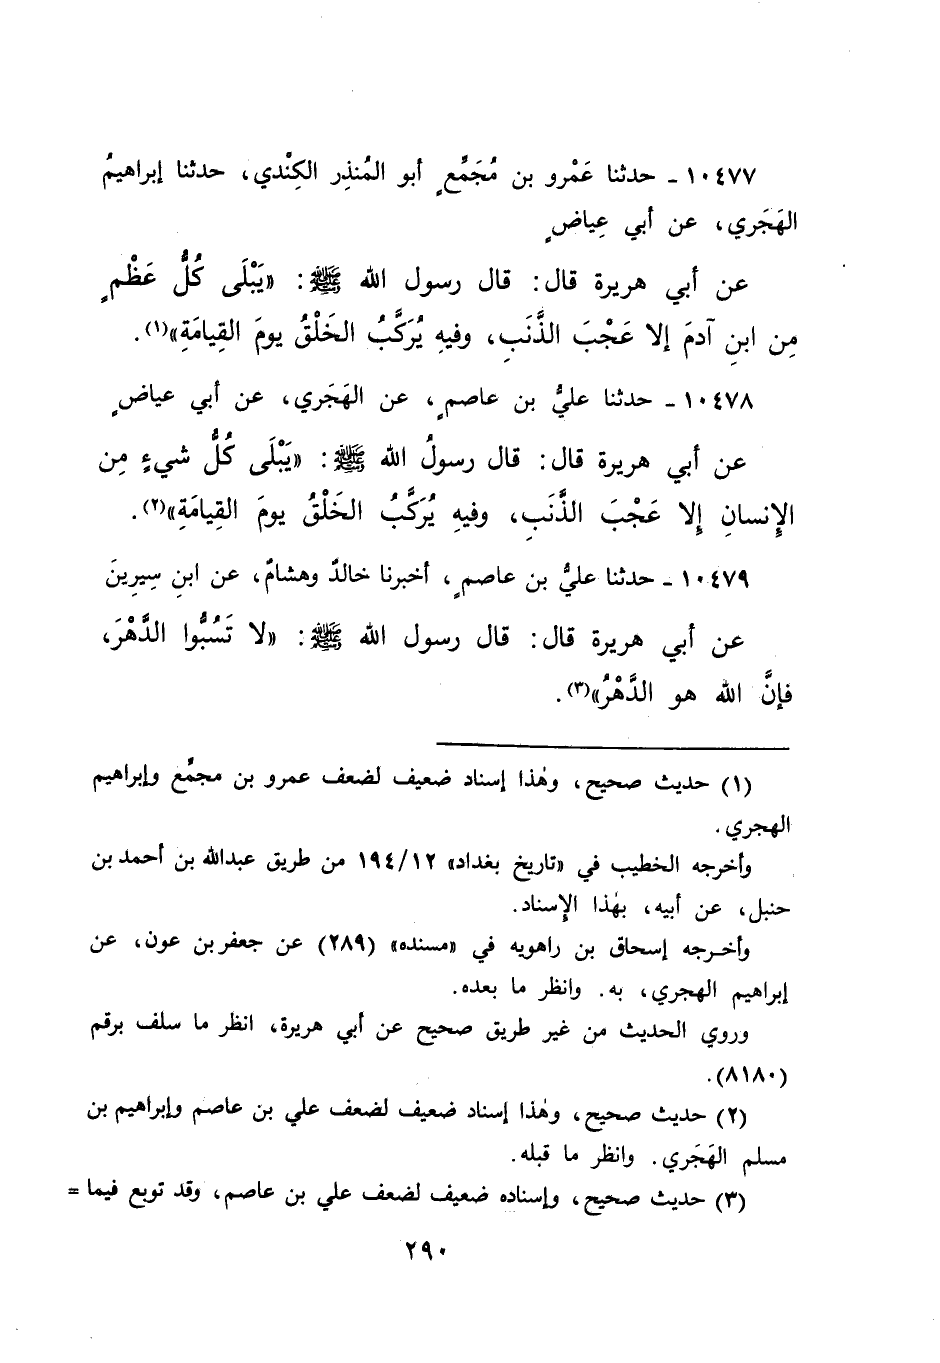 ١٠٤٧٧ - حدثنا عَمْرو بن مُجَمِّعٍ أبو المُنذِر الكِنْدي، حدثنا إبراهيمُ
الهَجَري، عن أبي عِياضٍ
عن أبي هريرة قال: قال رسول الله ﷺ: «يَبْلَى كُلُّ عَظْمٍ
مِن ابنِ آدمَ إلا عَجْبَ الذَّنَبِ، وفيهِ يُرَكَّبُ الخَلْقُ يومَ القِيامَةِ»(١).
١٠٤٧٨ - حدثنا عليُّ بن عاصمٍ، عن الهَجَري، عن أبي عياضٍ
عن أبي هريرة قال: قال رسولُ الله ﷺ: «يَبْلَى كُلُّ شيءٍ مِن
الإِنسانِ إِلا عَجْبَ الذَّنَبِ، وفيهِ يُرَكَّبُ الخَلْقُ يومَ القِيامَةِ»(٢).
١٠٤٧٩ - حدثنا عليُّ بن عاصمٍ، أخبرنا خالدٌ وهشامٌ، عن ابنِ سِيرِينَ
عن أبي هريرة قال: قال رسول الله ﷺ: «لا تَسُبُّوا الدَّهْرَ،
فإنَّ الله هو الدَّهْرُ»(٣).
(١) حديث صحيح، وهٰذا إسناد ضعيف لضعف عمرو بن مجمِّع وإبراهيم
الهجري.
وأخرجه الخطيب في «تاريخ بغداد» ١٩٤/١٢ من طريق عبدالله بن أحمد بن
حنبل، عن أبيه، بهٰذا الإِسناد.
وأخرجه إسحاق بن راهويه في «مسنده» (٢٨٩) عن جعفر بن عون، عن
إبراهيم الهجري، به. وانظر ما بعده.
وروي الحديث من غير طريق صحيح عن أبي هريرة، انظر ما سلف برقم
(٨١٨٠).
(٢) حديث صحيح، وهٰذا إسناد ضعيف لضعف علي بن عاصم وإبراهيم بن
مسلم الهَجَري. وانظر ما قبله.
(٣) حديث صحيح، وإسناده ضعيف لضعف علي بن عاصم، وقد توبع فيما =
٢٩٠